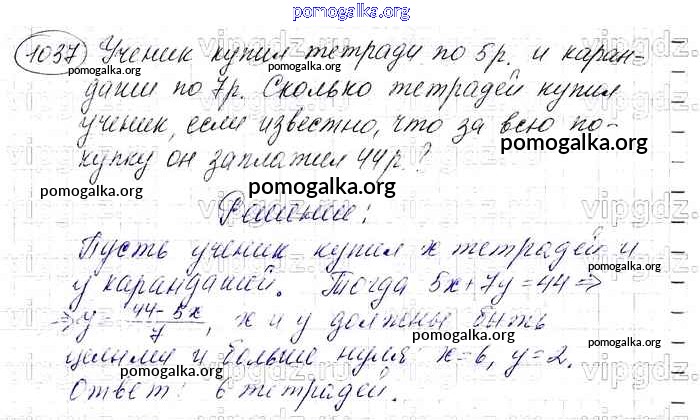 pomogalka.org
1037 Ученик купил тетради по 5р. и каран-
pomogalka.org pomogalka.org
даши по 7р. Сколько тетрадей купил
ученик, если известно, что за всю по-
pomogalka.org
купку он заплатил 44р.?
pomogalka.org pomogalka.org
vipgdz
Решение:
Пусть ученик купил x тетрадей и
pomogalka.org
y карандашей. Тогда 5x+7y=44 =>
pomogalka.org
=> y = 44-5x / 7, x и y должны быть
целыми и больше нуля x=6, y=2.
pomogalka.org
Ответ: 6 тетрадей.
pomogalka.org